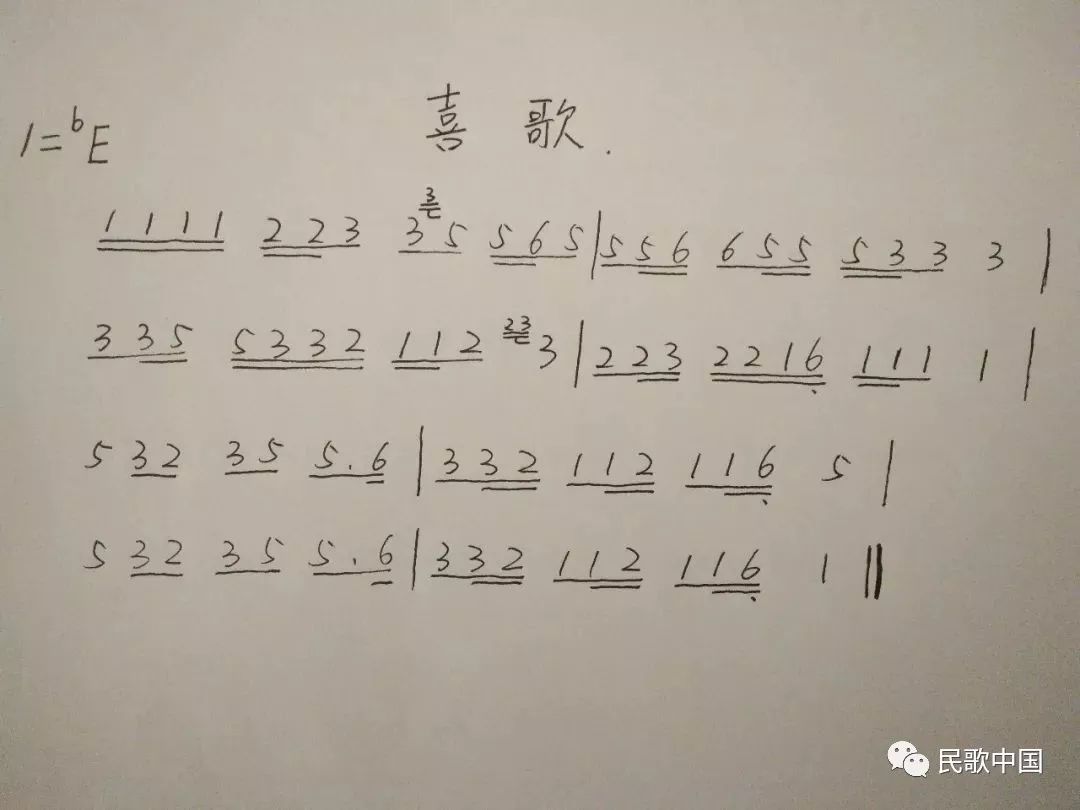 喜 歌.
1=bE
3
1 1 1 1 2 2 3 3 5 5 6 5 | 5 5 6 6 5 5 5 3 3 3 |
23
3 3 5 5 3 3 2 1 1 2 3 | 2 2 3 2 2 1 6 1 1 1 1 |
5 3 2 3 5 5. 6 | 3 3 2 1 1 2 1 1 6 5 |
5 3 2 3 5 5. 6 | 3 3 2 1 1 2 1 1 6 1 ||
民歌中国